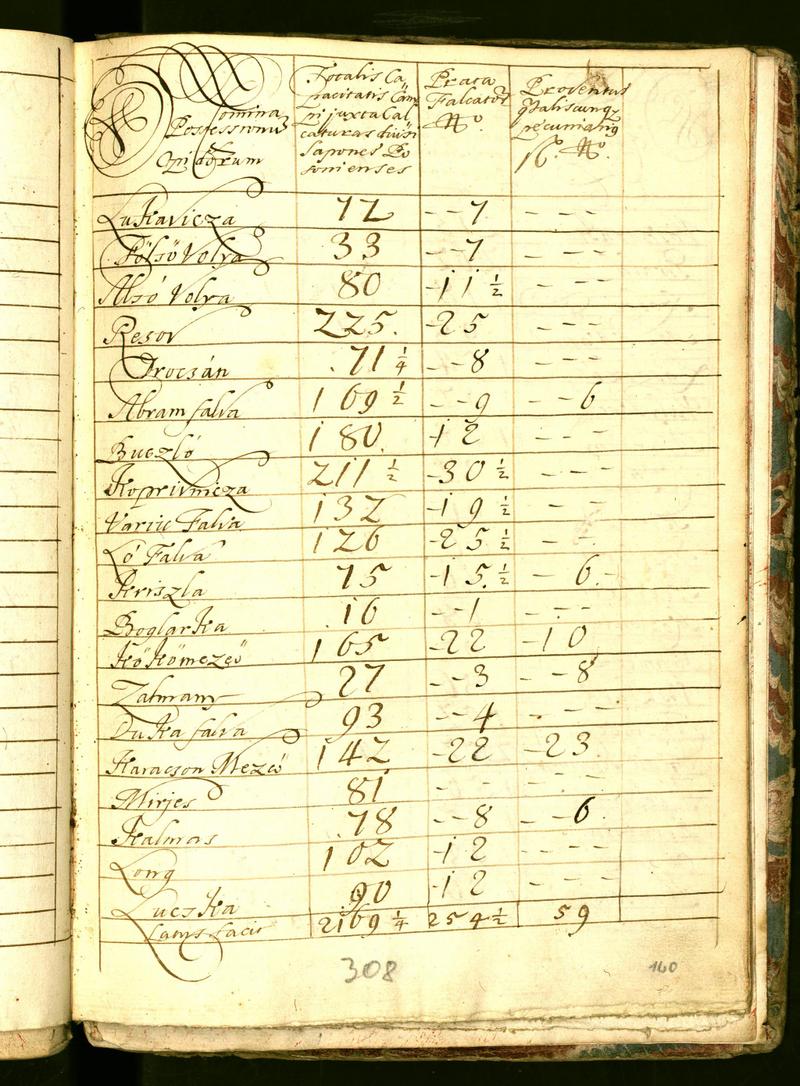 Nomina Possessionum Opidorum
Totalis Ca
pacitatis Cam
pi juxta Cal
caturas
Sapones Po
sonienses
Prata
Falcator
No
Proventus
qualiscunq
pecuniariq
No
Lukavicza 72 - - 7 - - -
Fölsö Volya 33 - - 7 - - -
Alsó Volya 80 - 11 1/2 - - -
Resov 225. - 25 - - -
Trocsán 71 1/4 - - 8
Abram falva 169 1/2 - - 9 - - 6
Buczló 180 - 12 - - -
Koprivnicza 211 1/2 - 30 1/2 - - -
Falva 132 - 19 1/2 - - -
Ló Falva 126 - 25 1/2 - - -
Kriszla 75 - 15 1/2 - 6. -
Boglarka 16 - - 1 - - -
Kökömezeö 165 - 22 - 10
Zatmam 27 - - 3 - - 8
Duka falva 93 - - 4 - - - -
Karacson Mezeö 142 - 22 - 23
Mirjes 81 - - - - -
Kalmas 78 - - 8 - - 6
Long 102 - 12 - - - -
Lucska 90 - 12 - - - -
Latus facit 2169 1/4 254 1/2 59
308
160